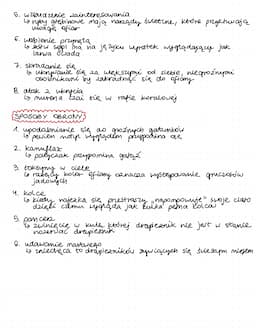 5. wzbudzanie zainteresowania
↳ ryby głębinowe mają narządy świetlne, które przykuwają
uwagę ofiar
6. wabienie przynętą
↳ żółw sępi ma na języku wyrostek wyglądający jak
larwa owada
7. skradanie się
↳ ukrywanie się za większymi od siebie, niegroźnymi
osobnikami by zakradnąć się do ofiary
8. atak z ukrycia
↳ murena czai się w rafie koralowej
SPOSOBY OBRONY
1. upodabnianie się do groźnych gatunków
↳ pewien motyl wyglądem przypomina osę
2. kamuflaż
↳ patyczak przypomina gałąź
3. toksyny w ciele
↳ rażący kolor ofiary oznacza występowanie gruczołów
jadowych
4. kolce
↳ kiedy najeżka się przestraszy "napompowuje" swoje ciało
dzięki czemu wygląda jak kulka pełna kolców
5. pancerz
↳ zwinięcie w kulę, której drapieżnik nie jest w stanie
drapieżnik
6. udawanie martwego
↳ zniechęca to drapieżników żywiących się świeżym mięsem